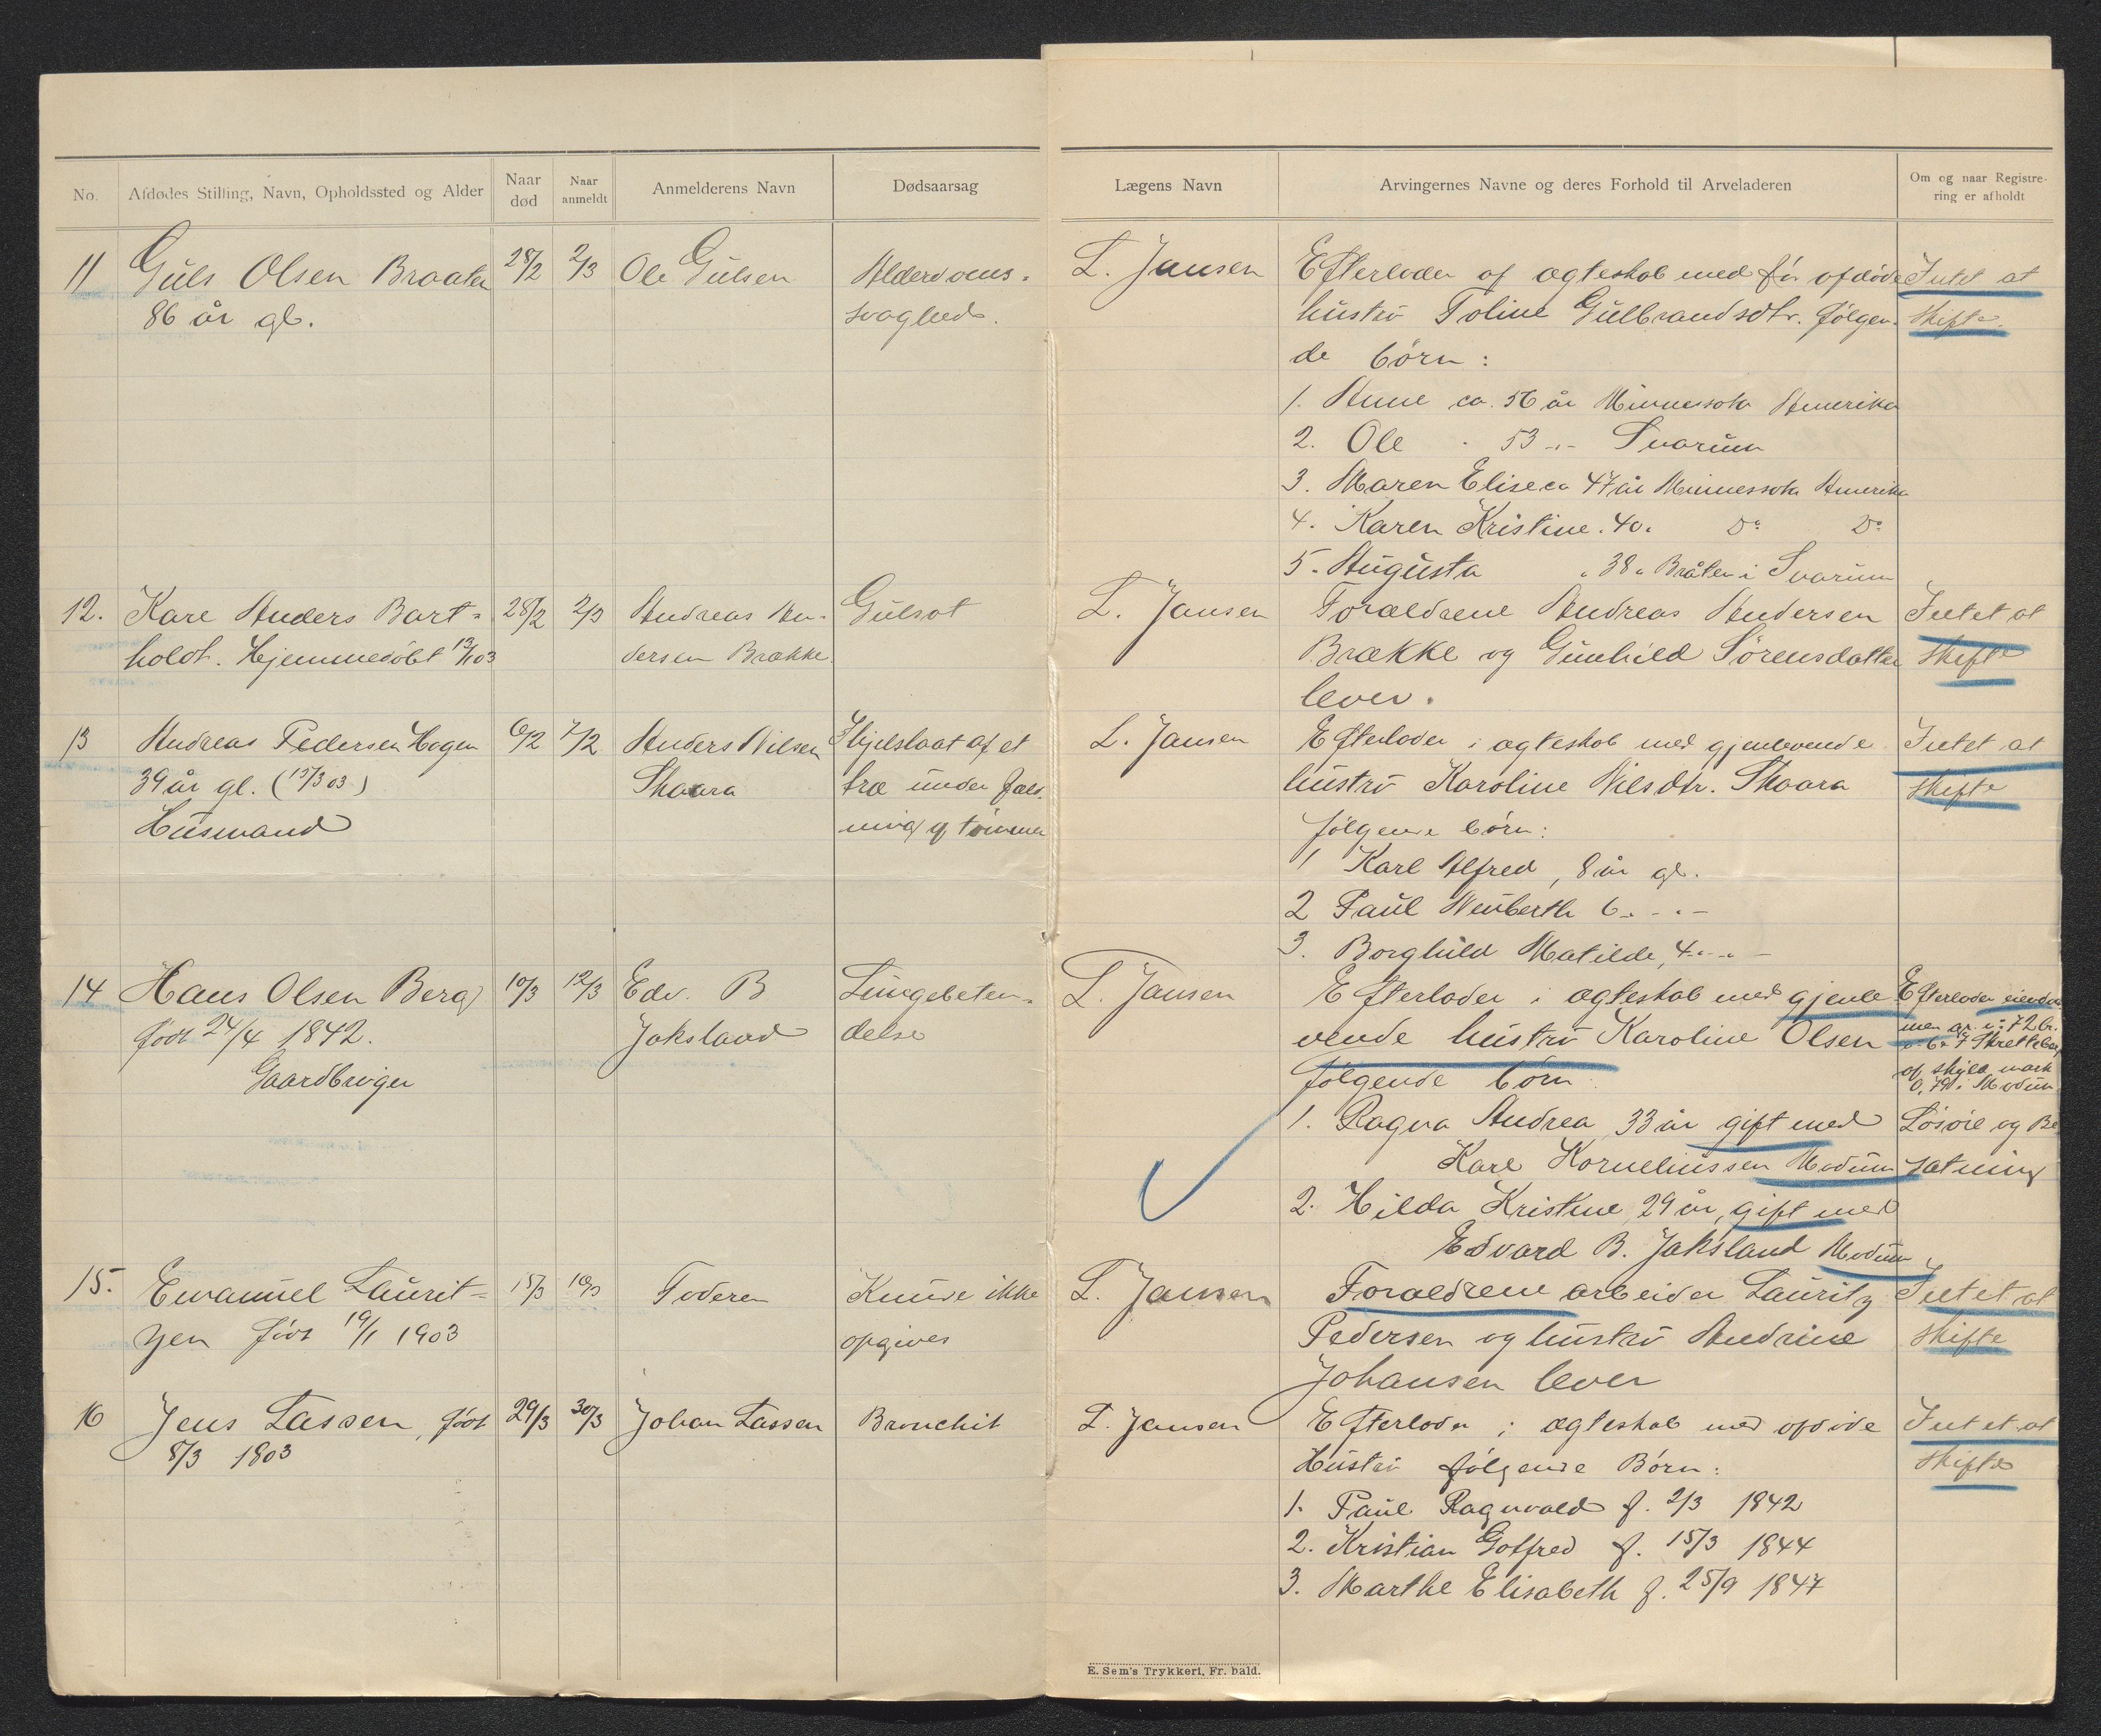 No.
Afdødes Stilling, Navn, Opholdssted og Alder
Naar
død
Naar
anmeldt
Anmelderens Navn
Dødsaarsag
Lægens Navn
Arvingernes Navne og deres Forhold til Arveladeren
Om og naar Registre-
ring er afholdt
11 Guls Olsen Braaten
86 år gl.
28/2
2/3
Ole Gulsen
Alderdoms-
svaghed.
L. Jansen
Efterlader af ægteskab med før afdøde
hustru Toline Gulbrandsdtr. følgen-
de børn:
1. Anne ca. 56 år Minnesota Amerika
2. Ole " 53 -"- Svarum
3. Maren Elise ca 47 år Minnesota Amerika
4. Karen Kristine " 40 " Do Do
5. Augusta " 38 " Bråten i Svarum
Intet at
skifte.
12. Karl Anders Bart-
holdt. Hjemmedøbt 13/1 03
28/2
2/3
Andreas An-
dersen Brække
Gulsot
L. Jansen
Forældrene Andreas Andersen
Brække og Gunhild Sørensdatter
lever.
Intet at
skifte
13 Andreas Pedersen Hagen
39 år gl. (15/3 03)
Husmand
6/2
7/2
Anders Nilsen
Skaara
Ihjelslaat af et
træ under fæld-
ning af tømmer
L. Jansen
Efterlader i ægteskab med gjenlevende
hustru Karoline Nilsdtr. Skaara
følgende børn:
1 Karl Alfred, 8 år gl.
2 Paul Neuberth 6 -"-
3. Borghild Matilde, 4 -"-
Intet at
skifte
14 Hans Olsen Berg
født 24/4 1842.
Gaardbruger
10/3
12/3
Edv. B
Jaksland
Lungebeten-
delse
L. Jansen
Efterlader i ægteskab med gjenle-
vende hustru Karoline Olsen
følgende børn
1. Ragna Andrea 33 år gift med
Karl Korneliussen Modum
2. Hilda Kristine 29 år, gift med
Edvard B. Jaksland Modum
Efterlader eiendom-
men gr. n: 72 br.
n. 6 & 7 Skretteberg
af skyld mark
0,79 i Modum
Løsøre og Be-
sætning
15. Emanuel Laurit-
zen født 19/1 1903
15/3
16/3
Faderen
Kunde ikke
opgives
L. Jansen
Forældrene arbeider Lauritz
Pedersen og hustru Andrine
Johansen lever
Intet at
skifte
16 Jens Lassen, født
8/3 1803
29/3
30/3
Johan Lassen
Bronchit
L. Jansen
Efterlader i ægteskab med afdøde
Hustru følgende Børn:
1. Paul Ragnvald f. 2/3 1842
2. Kristian Gotfred f. 15/3 1844
3. Marthe Elisabeth f. 25/9 1847
Intet at
skifte
E. Sem's Trykkeri, Fr. hald.